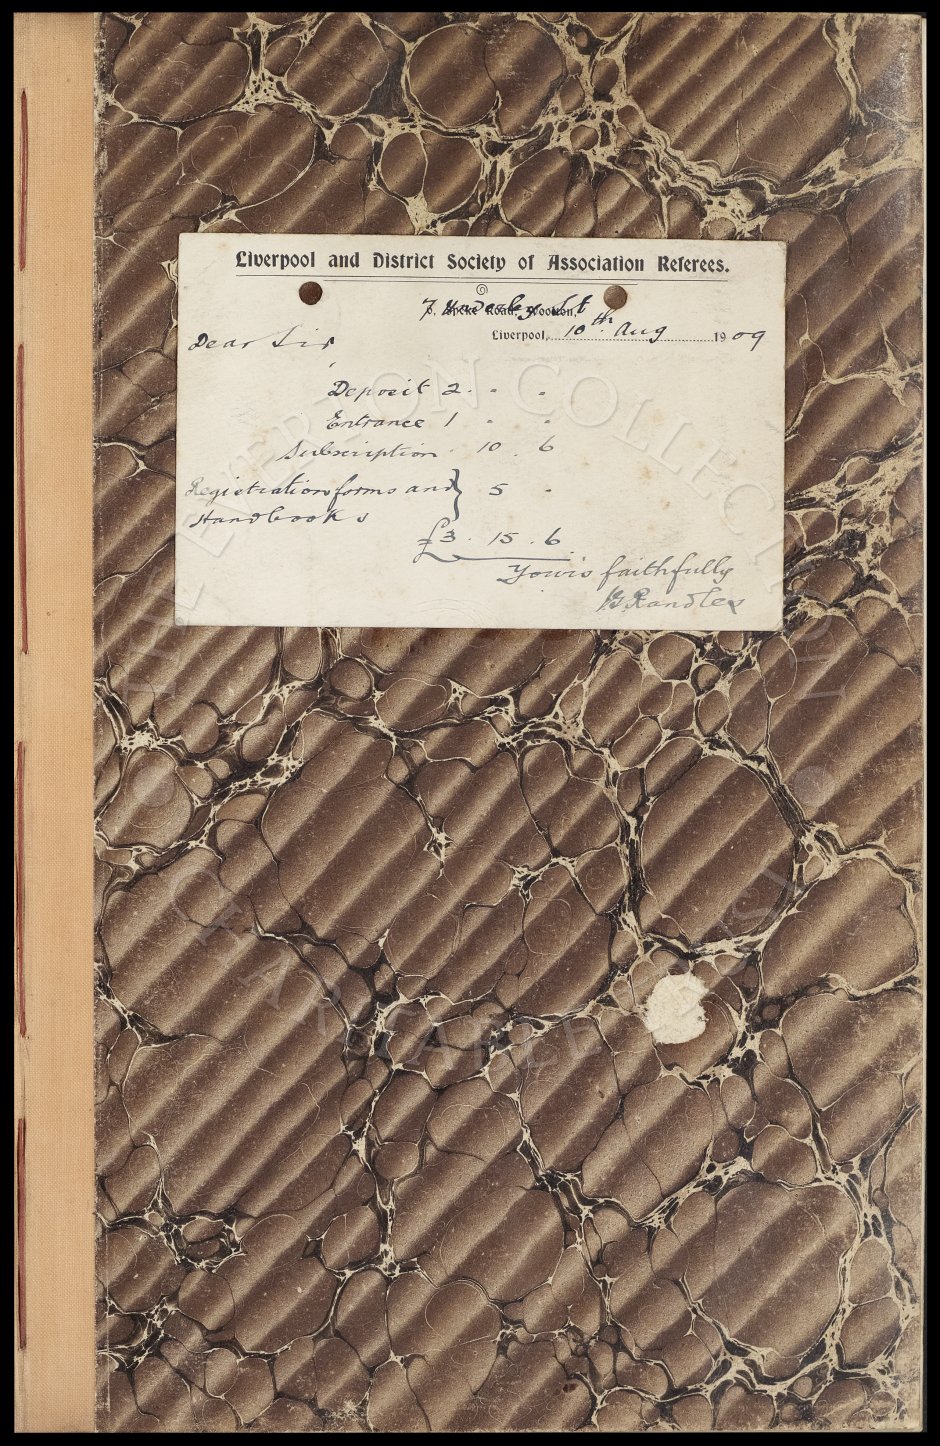 Liverpool and District Society of Association Referees.
7, St
Road, Woolton,
Liverpool, 10th Aug 1909
Dear Sir,
Deposit 2. " "
Entrance 1 " "
Subscription. 10. 6
Registration forms and } 5 "
Handbooks
£3. 15. 6
Yours faithfully
Randles
THE EVERTON COLLECTION
CHARITABLE TRUST